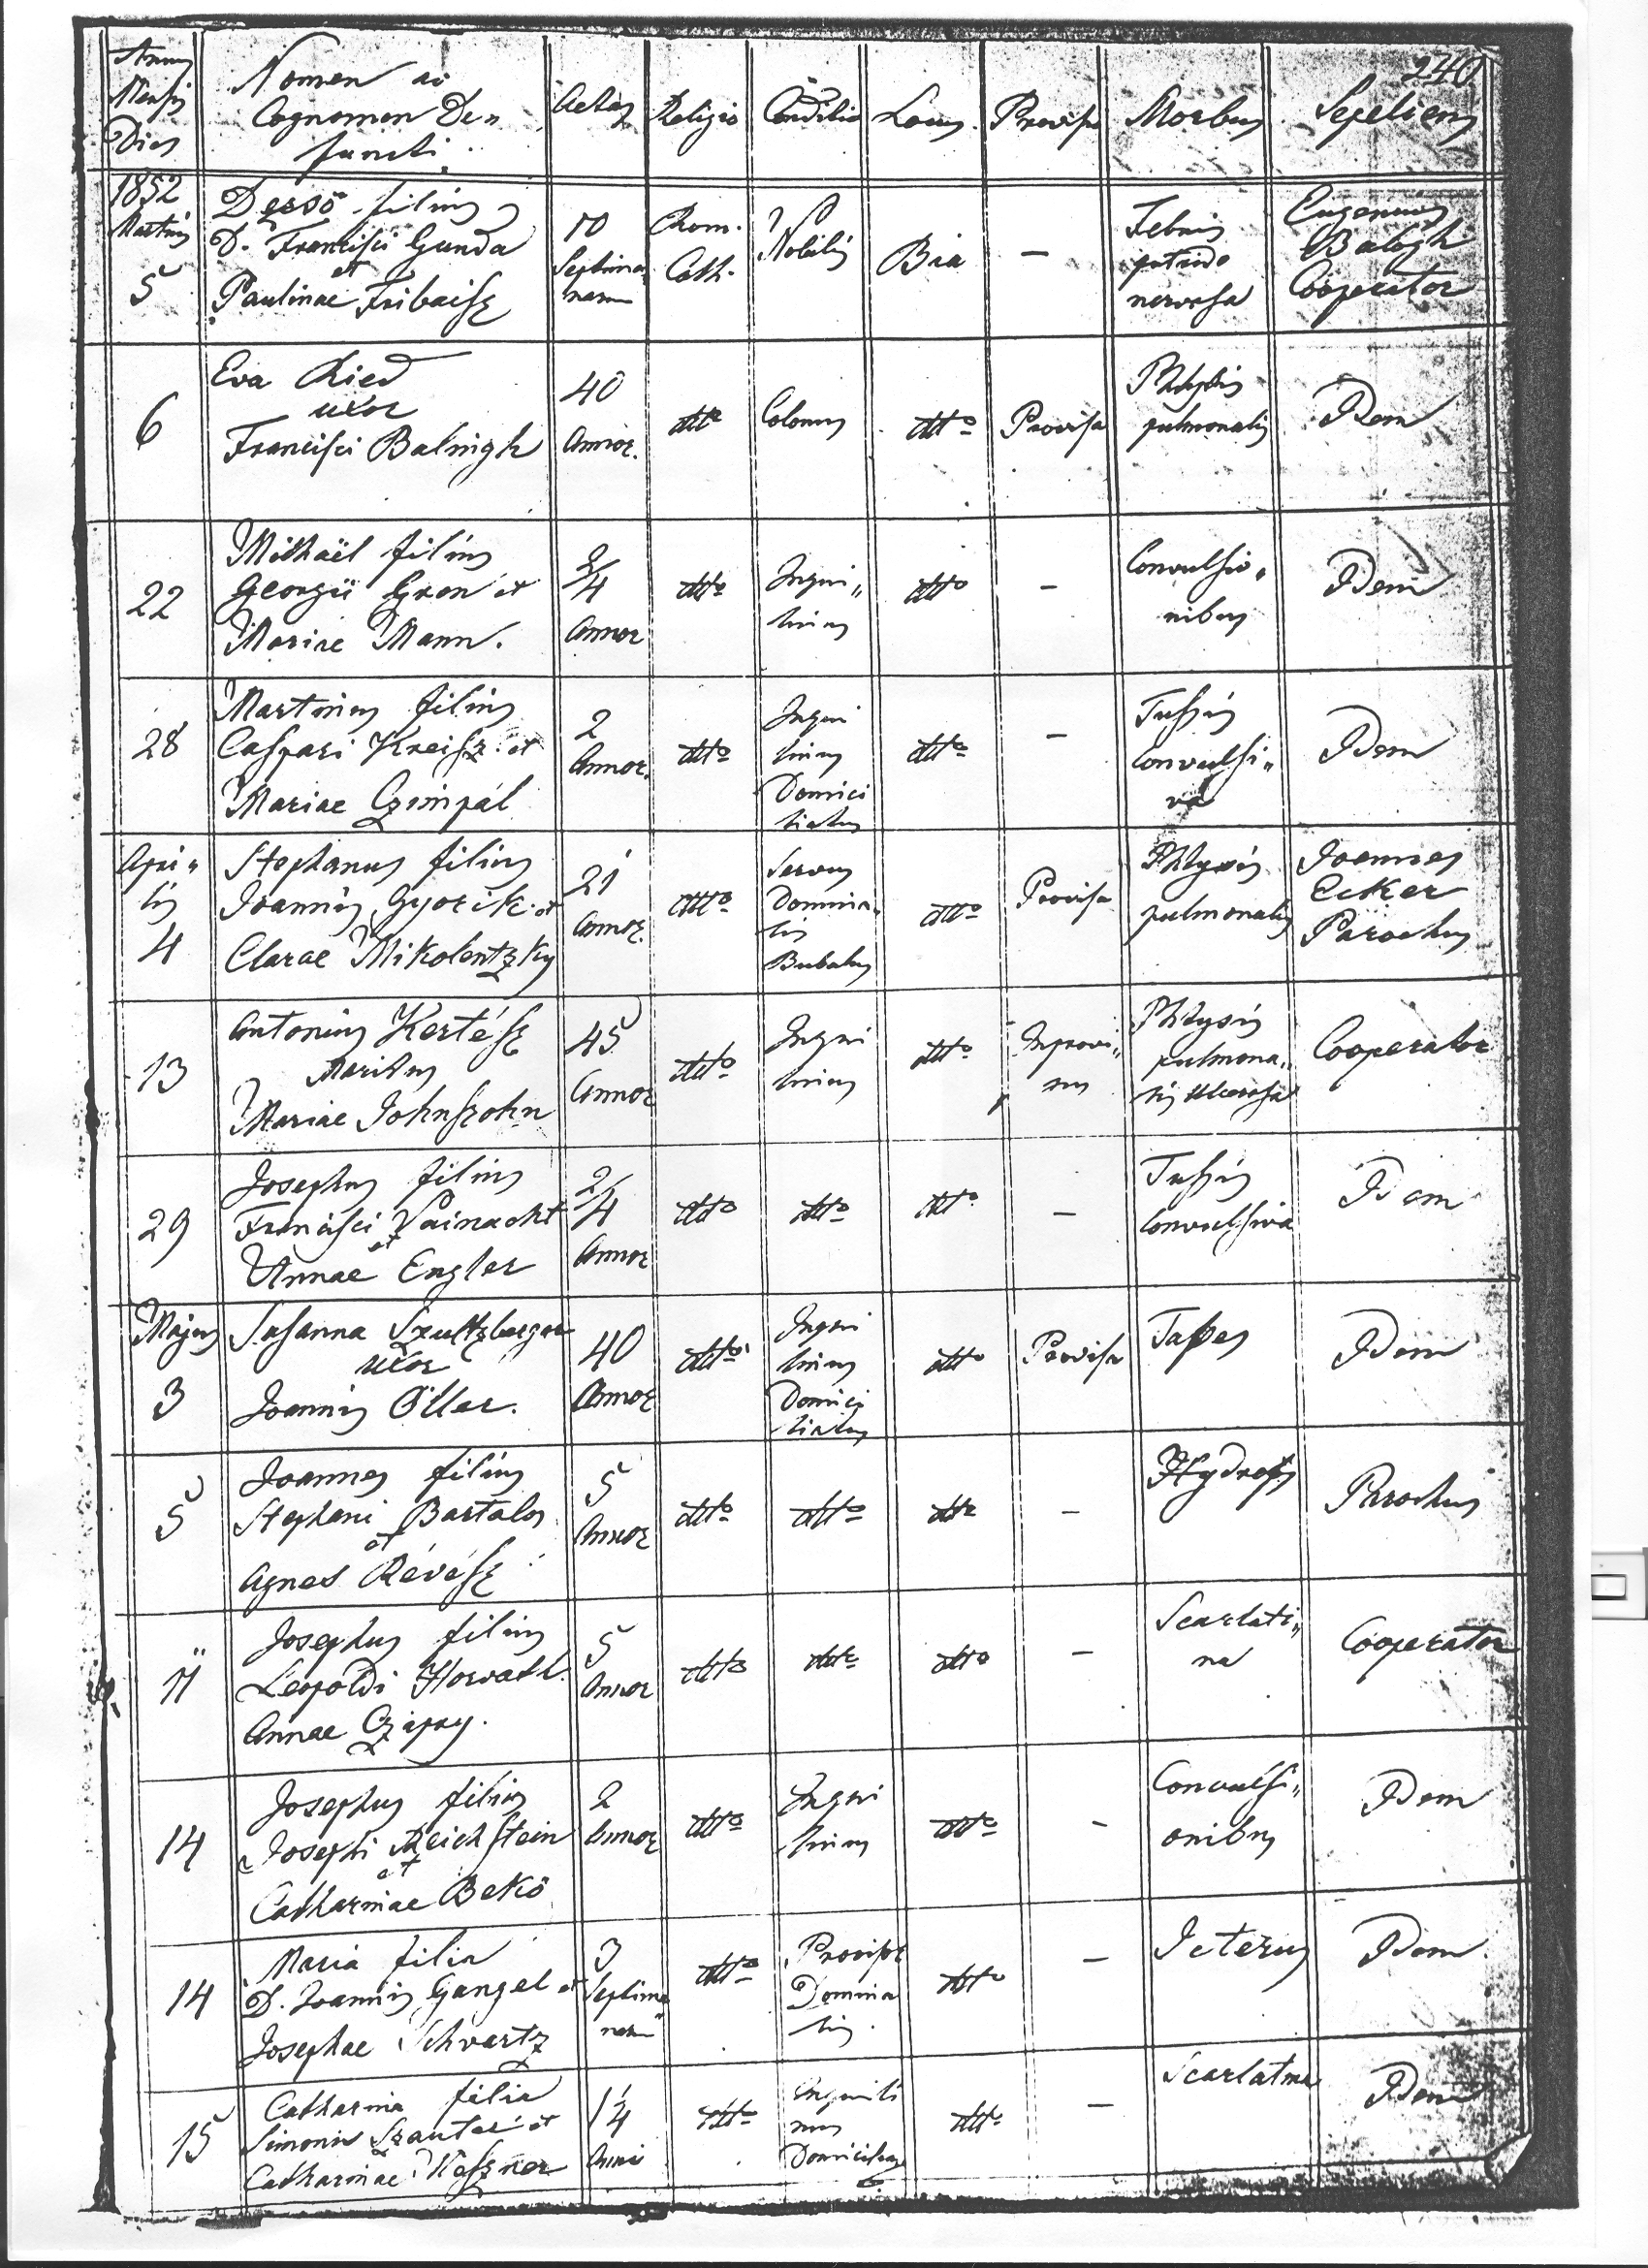 240
Annus Mensis Dies
Nomen ac Cognomen Defuncti
Aetas
Religio
Conditio
Locus
Provisus
Morbus
Sepeliens
1852 Martius 5
Desső filius
D. Francisci Gunda
et
Paulinae Fribeisz
10 Septimanarum
Rom. Cath.
Nobilis
Bia
—
Febris putrido nervosa
Eugenius Balogh Cooperator
6
Eva Ried
uxor
Francisci Balingh
40 Annor.
dtto
Colonus
dtto
Provisa
Phtysis pulmonalis
Idem
22
Michaël filius
Georgii Gron et
Mariae Mann.
3/4 Annor
dtto
Inqui„linus
dtto
—
Convulsio„nibus
Idem
28
Martinus filius
Caspari Kreisz et
Mariae Czinpál
2 Annor.
dtto
Inquilinus Domiciliatus
dtto
—
Tussis convulsi„va
Idem
Apri„lis 4
Stephanus filius
Joannis Gyorik et
Clarae Mikolentzky
21 Annor.
dtto
Servus Dominalis Bubulcus
dtto
Provisa
Phtysis pulmonalis
Joannes Ecker Parochus
13
Antonius Kertész
Maritus
Mariae Johnszohn
45 Annor
dtto
Inquilinus
dtto
Inprovi„sus
Phtysis pulmona„lis ulcerosa
Cooperator
29
Josephus filius
Francisci Vainacht
et
Annae Engler
2/4 Annor
dtto
dtto
dtto
—
Tussis convulsiva
Idem
Majus 3
Susanna Szultzberger
uxor
Joannis Öller.
40 Annor
dtto
Inquilinus Domiciliatus
dtto
Provisa
Tabes
Idem
5
Joannes filius
Stephani Bartalos
et
Agnes Révész
5 Annor
dtto
dtto
dtto
—
Hydrops
Parochus
11
Josephus filius
Leopoldi Horvath
Annae Czápay.
5 Annor
dtto
dtto
dtto
—
Scarlati„na
Cooperator
14
Josephus filius
Josephi Reichstein
et
Catharinae Bekö
2 Annor
dtto
Inquilinus
dtto
-
Convulsi„onibus
Idem
14
Maria filia
D. Joannis Gangel et
Josephae Schvartz
3 Septimanarum
dtto
Provisor Dominalis.
dtto
—
Icterus
Idem
15
Catharina filia
Simonis Szauter et
Catharinae Keszner
1 1/4 Anni
dtto
Inquilinus Domiciliatus
dtto
—
Scarlatina
Idem